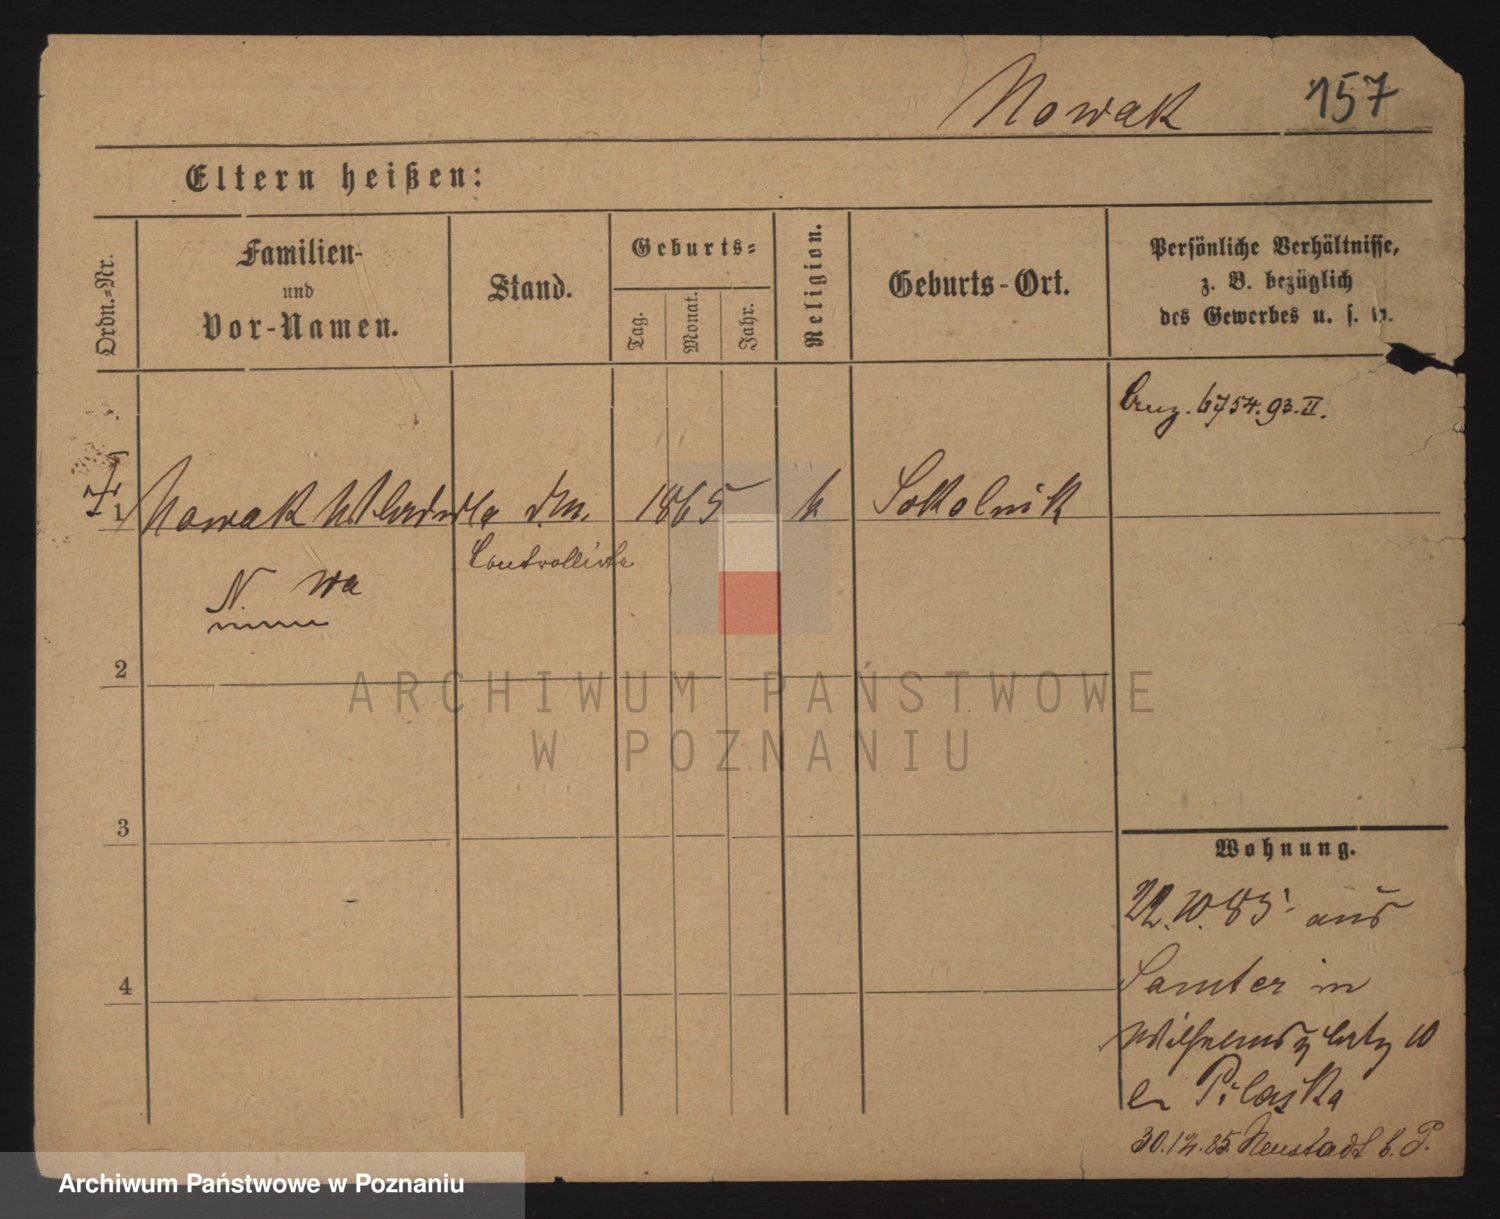 Nowak 157
Eltern heißen:
Ordn.=Nr.
Familien-
und
Vor-Namen.
Stand.
Geburts=
Tag.
Monat.
Jahr.
Religion.
Geburts-Ort.
Persönliche Verhältnisse,
z. B. bezüglich
des Gewerbes u. s. w.
6754.93.II.
1 Nowak 1865 k Sokolnik
N. wa
2
3
4
Wohnung.
22.10.85. aus
Samter in
Wilhelmsplatz 10
Pilaska
30.12.85. Neustadt b. P.
ARCHIWUM PAŃSTWOWE
W POZNANIU
Archiwum Państwowe w Poznaniu